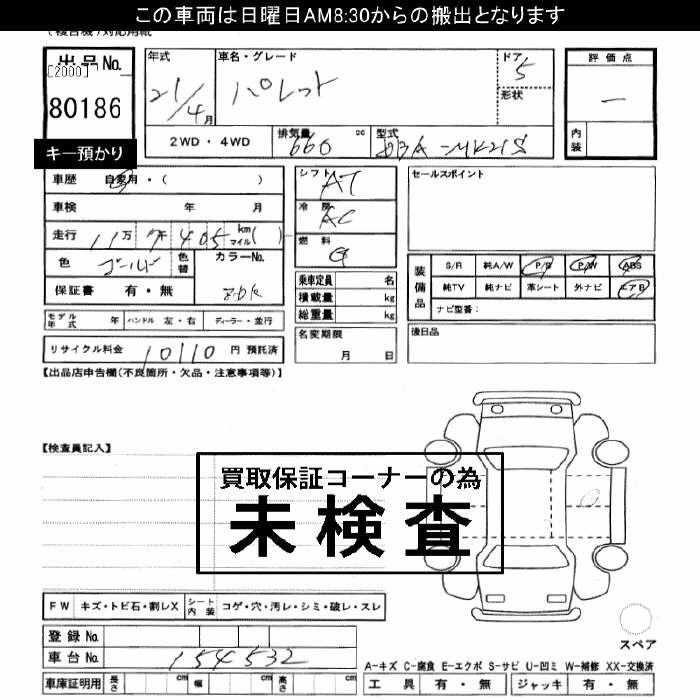 この車両は日曜日AM8:30からの搬出となります
出品No.
[2000]
80186
キー預かり
年式
21/4月
車名・グレード
パレット
ドア
5
形状
評価点
一
内装
2WD・4WD
排気量
660 cc
型式
DBA-MK21S
車歴 自家用・( )
車検 年 月
走行 11万 7千 405 km マイル ( )
色 ゴールド 色替 カラーNo.
保証書 有・無
シフト
AT
冷房
AC
燃料
G
セールスポイント
乗車定員 名
積載量 kg
総重量 kg
名変期限
月 日
装備品
S/R 純A/W P/S P/W ABS
純TV 純ナビ 革シート 外ナビ エアB
ナビ型番:
後日品
モデル年式 年 ハンドル 左・右 ディーラー・並行
リサイクル料金 10110 円 預託済
【出品店申告欄(不良箇所・欠品・注意事項等)】
【検査員記入】
買取保証コーナーの為
未検査
FW キズ・トビ石・割レX シート内装 コゲ・穴・汚レ・シミ・破レ・スレ
登録No.
車台No. 154532
車庫証明用 長さ cm 幅 cm 高さ cm
スペア
A-キズ C-腐食 E-エクボ S-サビ U-凹ミ W-補修 XX-交換済
工具 有・無 ジャッキ 有・無